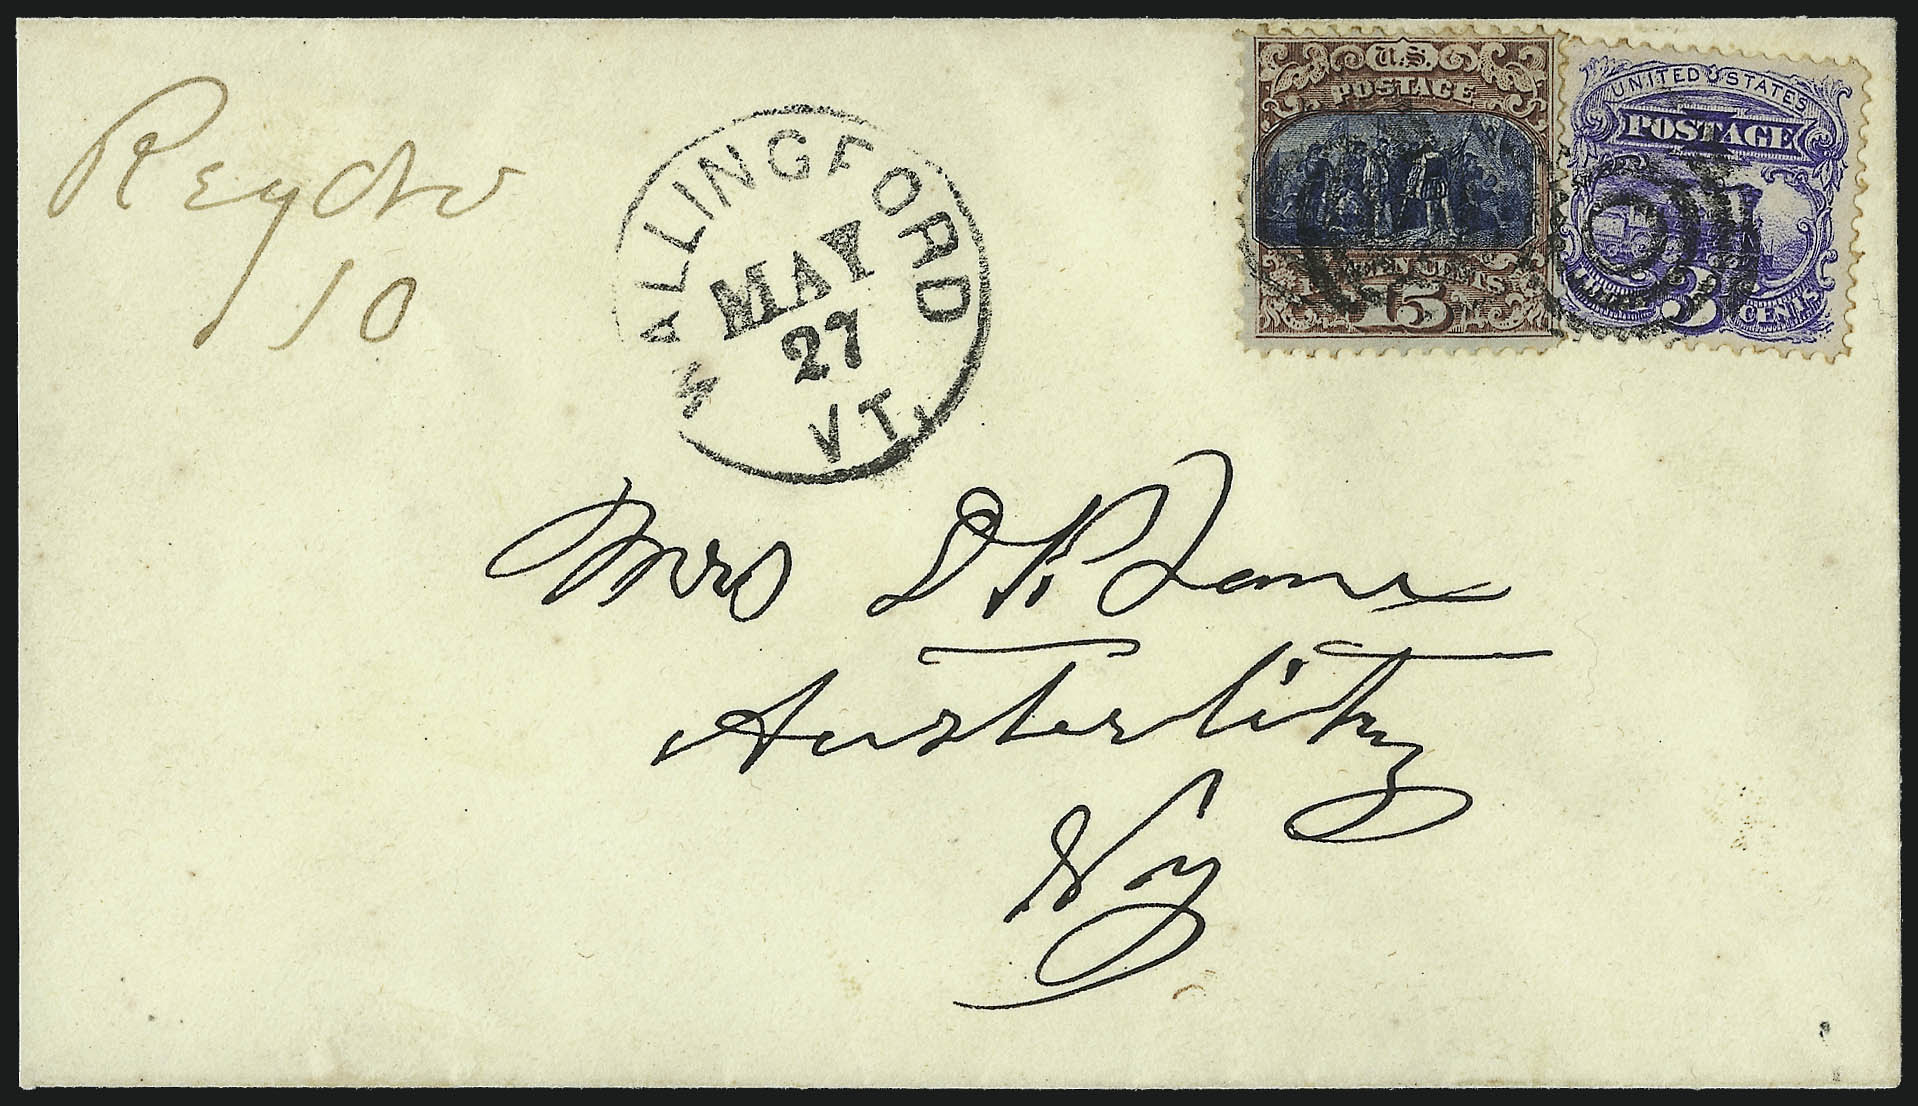 Regd No
10
WALLINGFORD
MAY
27
VT.
U.S.
POSTAGE
15
UNITED STATES
POSTAGE
THREE 3 CENTS
Mrs D P Lane
Austerlitz
Ny